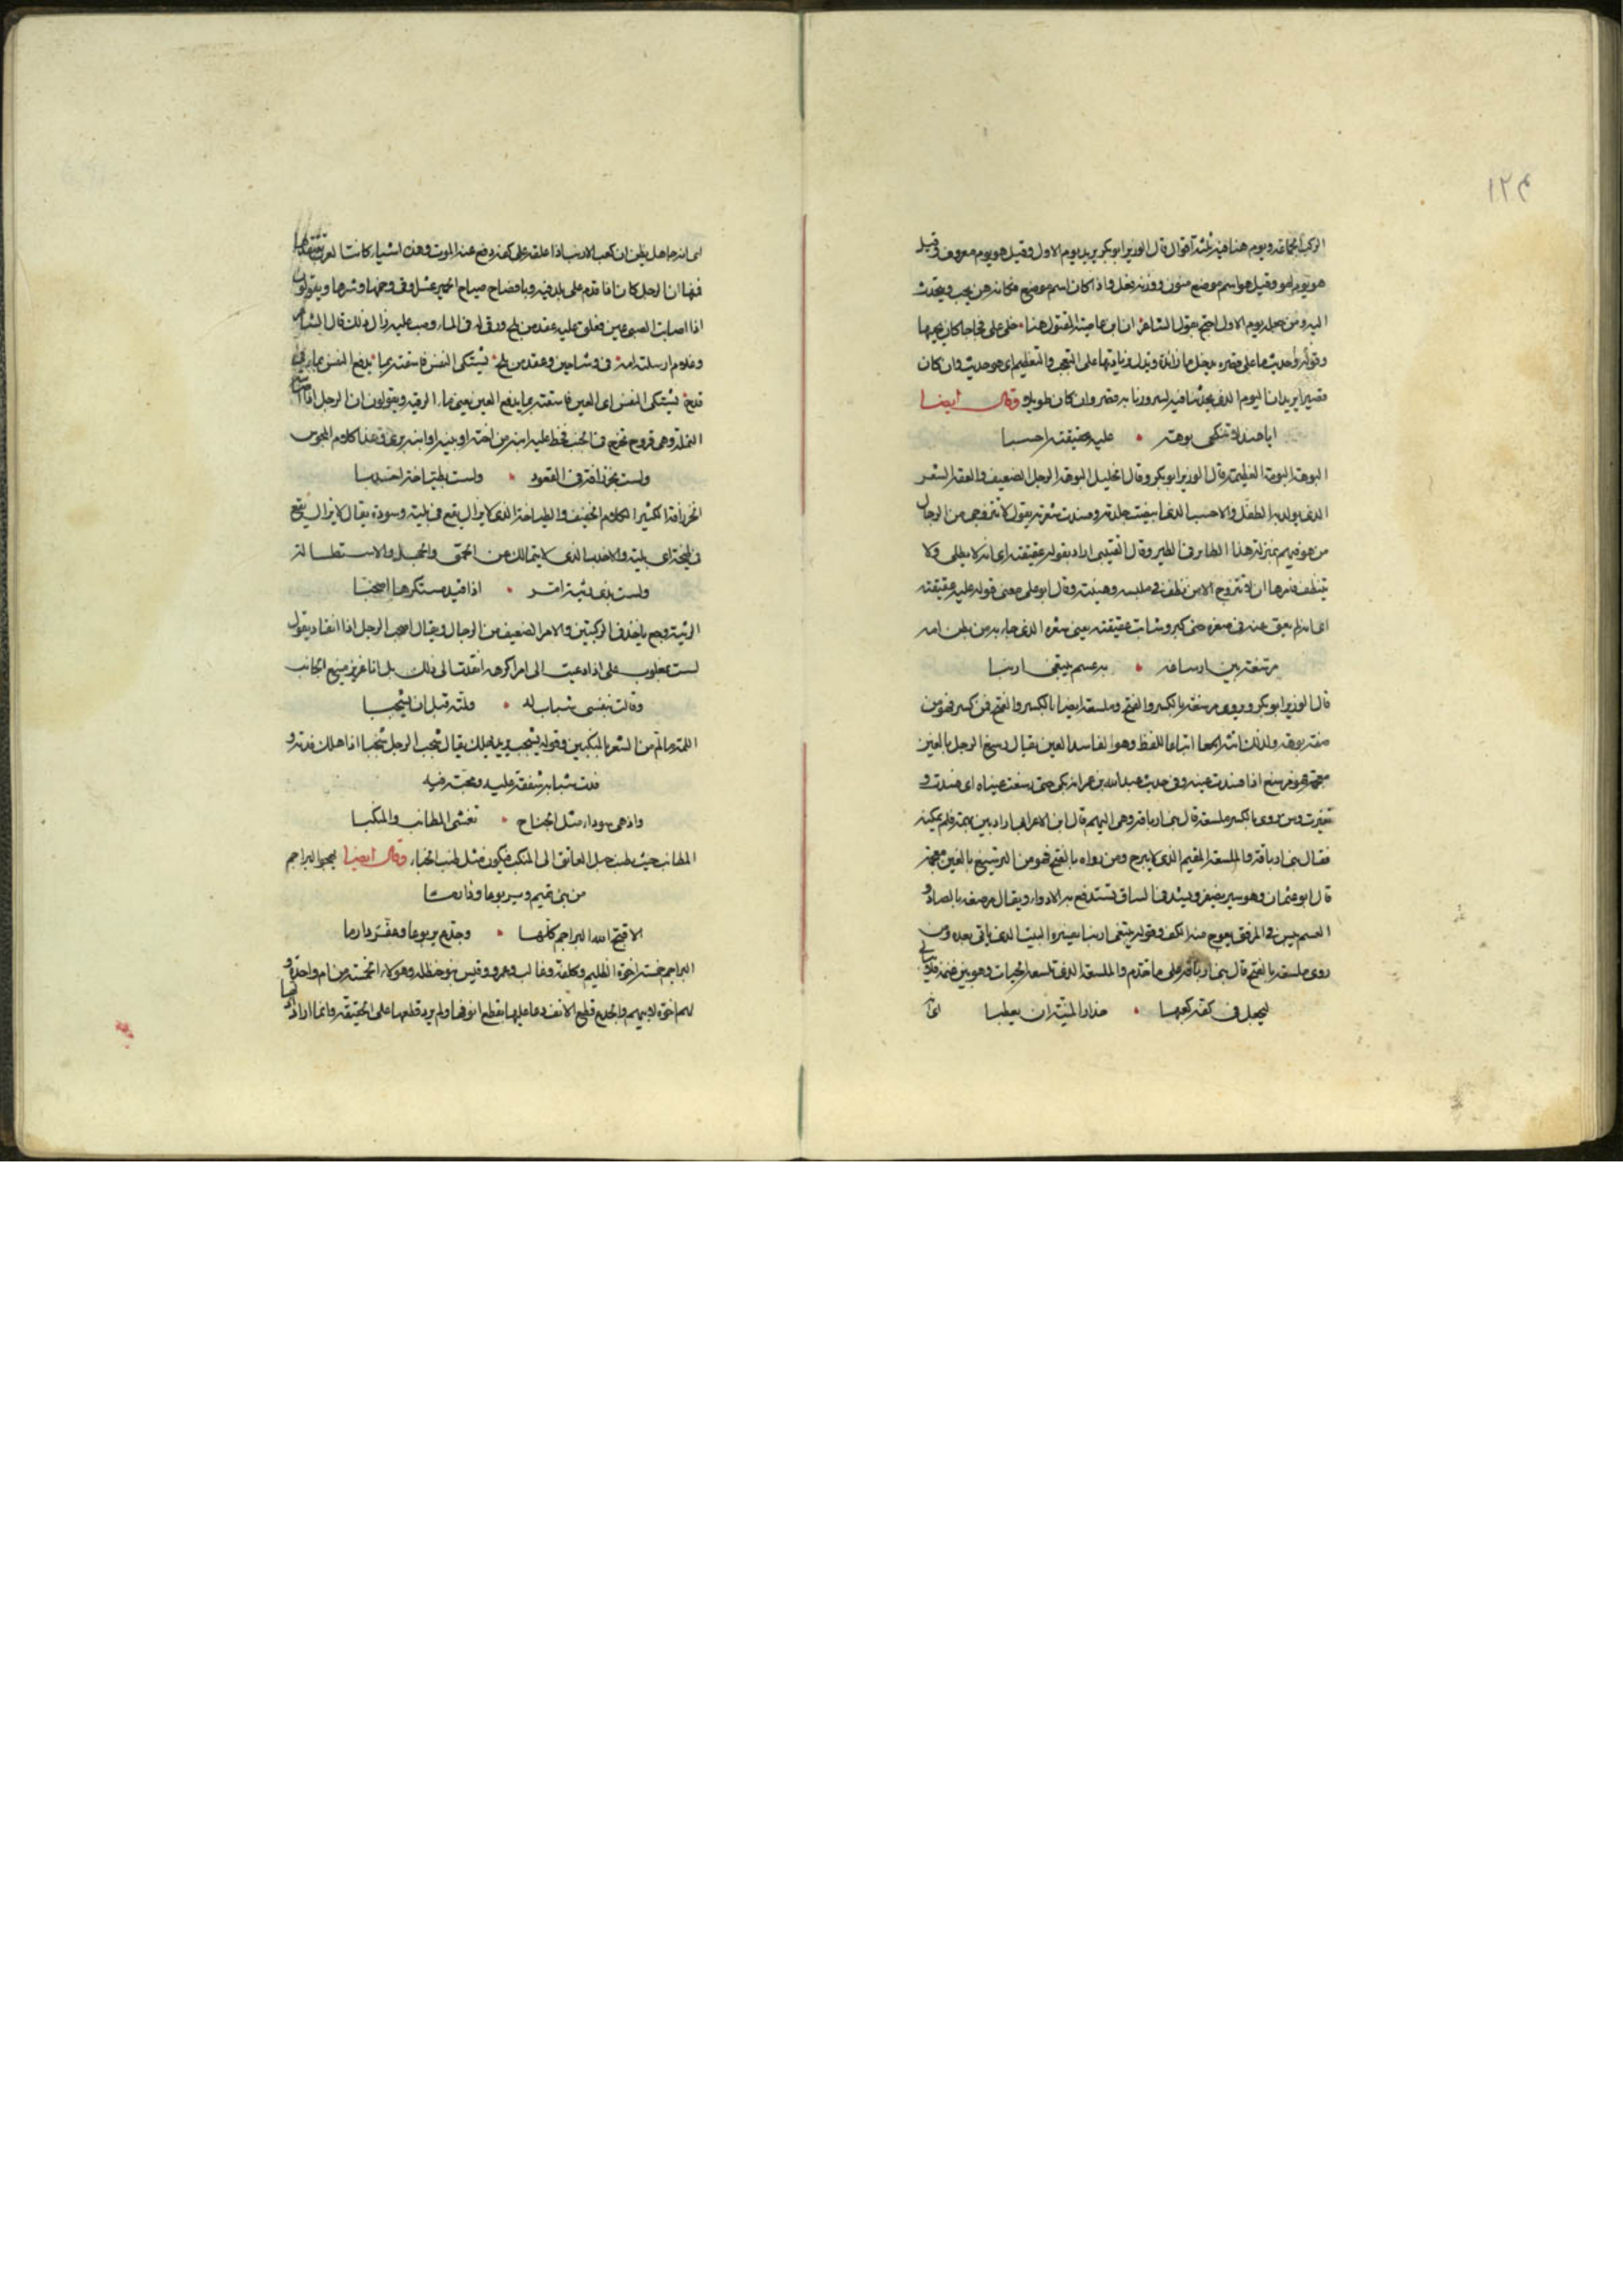 الركب المخافة ويوم هنا فيه ثلثة اقوال قال الوزير ابو بكر يريد يوم الاول وقيل هو يوم معروف وقيل
هو يوم لهو وقيل هو اسم موضع منون ووزنه فعل واذا كان اسم موضع فكانه من يحب ويتحدث
اليه ومن جعله يوم الاول احتج بقول الشاعر ان ابن عاصية المقتول هنا خلى على فجاجا كان يحميها
وقوله وحديث ما على قصره يجعل ما زائدة ويدل زيادتها على التعجب والتعظيم اى هو حديث وان كان
قصيرا يريد ان اليوم الذى تحدثنا فيه لسرورنا به قصر وان كان طويلا وقال ايضا
ايا هند لا تنكحى بوهة • عليه عقيقته احسبا
البوهة البومة العظيمة قال الوزير ابو بكر وقال الخليل البوهة الرجل الضعيف والعقة الشعر
الذى يولد به الطفل والاحسب الذى ابيضت جلدته وفسدت شعرته يقول لا تتزوجى من الرجال
من هو فيهم بمنزلة هذا الطاير فى الطير وقال القتيبى اراد بقوله عقيقته اى انه لا يطلى ولا
يتنظف فامرها ان لا تتزوج الا من نظف فى ملبسه وهيئته وقال ابو على معنى قوله عليه عقيقته
اى انه لم يعق عنه فى صغره حتى كبر وشابت عقيقته يعنى شعره الذى جاء به من بطن امه
مرسعة بين ارساغه • به عسم يبتغى ارنبا
قال الوزير ابو بكر ويروى مرسغة بالكسر والفتح وملسعة ايضا بالكسر والفتح فمن كسر فهو من
صفة بوهة ولذلك انثه ايضا اتباعا للفظ وهو الفاسد العين يقال رسغ الرجل بالغين
معجمة فهو مرسغ اذا فسدت عينه وفى حديث عبد الله بن عمر انه بكى حتى رسغت عيناه اى فسدت و
تغيرت ومن روى بالكسر ملسعة قال بين ارباقه وهى البهم قال ابن الاعرابى اراد بين بهمه فلم يمكنه
فقال بين ارباقه والملسعة المقيم الذى لا يبرح ومن رواه بالفتح فهو من الترسيغ بالغين معجمة
قال ابو عثمان وهو سير يضفر ويشد فى الساق تستدفع به الادواء ويقال مرصعة بالصاد و
العسم يبس فى المرفق يعوج منه الكف وقوله يبتغى ارنبا يفسره البيت الذى ياتى بعده ومن
روى ملسعة بالفتح قال بين ارباقه على ما تقدم والملسعة الذى تلسعه الحيات وهو بين غنمه فلا
ليجعل فى كفه كعبها • حذار المنية ان يعطبا اى
انه جاهل يظن ان كعب الارنب اذا علقه على كفه دفع عنه الموت وهذه اشياء كانت العرب
فمنها ان الرجل كان اذا قدم على بلد فيه وبا فصاح صياح الحمير عشرا وقى وخمها وشرها ويقولون
اذا اصابت الصبى عين فعلق عليه عقد من ملح ودقيق فى الماء وصب عليه زال ذلك قال الشاعر
وغلام ارسلته امه فى وشاحين وعقد من ملح تشتكى النفس فاسقته بما يدفع النفس
قدح تشتكى النفس اى العين فاسقته بما يدفع العين يعنى ماء الرقية ويقولون ان الرجل اذا
النملة وهى قروح تخرج فى الجنب فخط عليه ابنه من اخته او بنيه او ابنه برئ وهذا كلام المجوس
ولست بخزرافة فى القعود • ولست بطياخة اخدبا
الخزرافة الكثير الكلام الخفيف والطياخة الذى لا يزال يقع فى بلية وسوءة يقال لا يزال يقع
فى طيخة اى بلية والاخدب الذى لا يتمالك من الحمق والجهل والاستطالة
ولست بذى رثية امر • اذا قيد مستكرها اصحبا
الرثية وجع ياخذ فى الركبتين والامر الضعيف من الرجال ويقال اصحب الرجل اذا انقاد يقول
لست بمغلوب على اذا دعيت الى امر اكرهه انقدت الى ذلك بل انا عزيز منيع الجانب
وقالت بنفسى شباب له • ولمته قبل ان يشجبا
اللمة ما الم من الشعر بالمنكبين وقوله يشجب يريد يهلك يقال شجب الرجل شجبا اذا هلك فدته و
فدت شبابه شفقة عليه ومحبة فيه
واذ هى سوداء مثل الجناح • تغشى المطانب والمنكبا
المطانب حيث طنب حبل العاتق الى المنكب فيكون مثل طنب الخباء وقال ايضا يهجو البراجم
من بنى تميم ويربوعا ودارما
الا قبح الله البراجم كلها • وجدع يربوعا وعفر دارما
البراجم خمسة اخوة الظليم وكلفة وغالب وعمرو وقيس بنو حنظلة وهولاء الخمسة من ام واحدة و
لهم اخوة لابيهم والجدع قطع الانف دعا عليها بقطع انوفها ولم يرد قطعها على الحقيقة وانما اراد